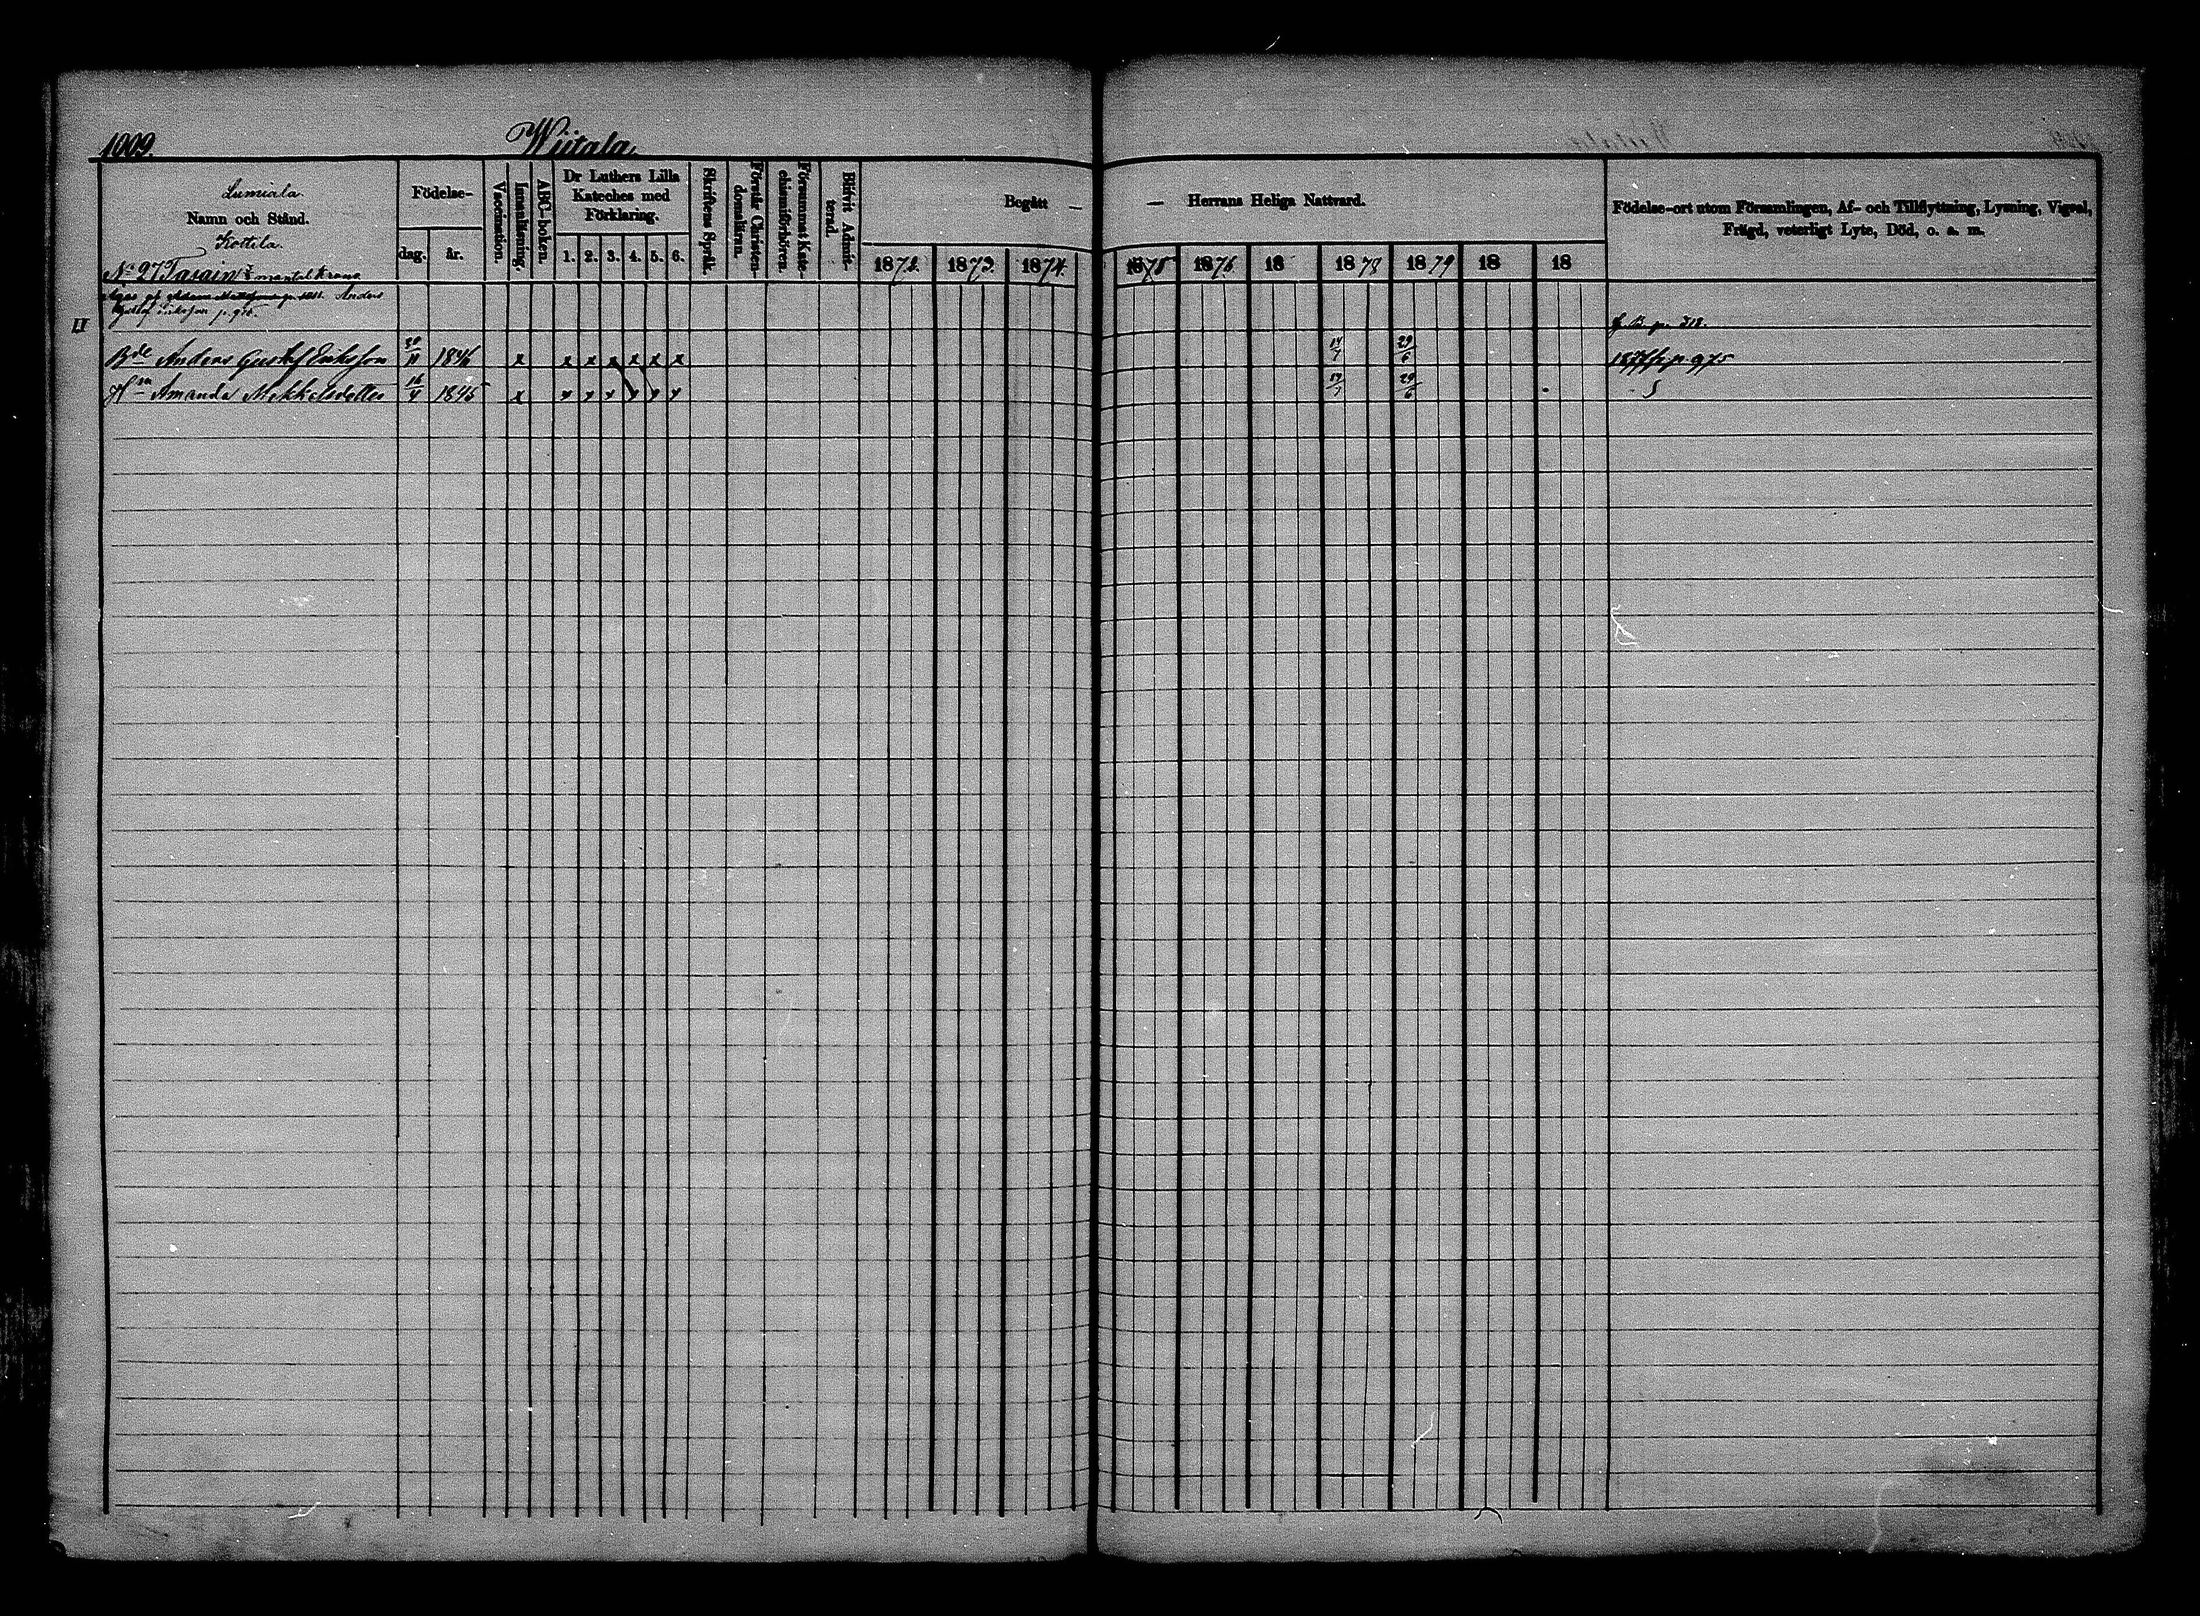 1009.
Wiitala.
Lumiala
Namn och Stånd.
Kottila.
Födelse-
dag.
år.
Vaccination.
Innanläsning.
ABC-boken.
Dr Luthers Lilla
Kateches med
Förklaring.
1. 2. 3. 4. 5. 6.
Skriftens Språk.
Förstår Christen-
domsläran.
Försummat Kate-
chismiförhören.
Blifvit Admit-
terad.
Begått —
— Herrans Heliga Nattvard.
1872. 1873. 1874. 1875 1876 18 1878 1879 18 18
Födelse-ort utom Församlingen, Af- och Tillflyttning, Lysning, Vigsel,
Frägd, veterligt Lyte, Död, o. s. m.
No 97 Tasain mantal Krono
Anders
Gustaf Eriksson p. 976.
II
Bde Anders Gustaf Eriksson 30/11 1846 x x x x x x x 14/7 29/6 1877 fr p. 975
Hn Amanda Mikkelsdotter 16/4 1845 x x x x x x x 14/7 29/6